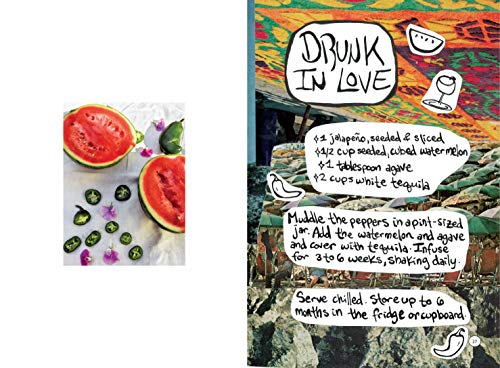 DRUNK
IN LOVE
♦1 jalapeño, seeded & sliced
♦1/2 cup seeded, cubed watermelon
♦1 tablespoon agave
♦2 cups white tequila
Muddle the peppers in a pint-sized
jar. Add the watermelon and agave
and cover with tequila. Infuse
for 3 to 6 weeks, shaking daily.
Serve chilled. Store up to 6
months in the fridge or cupboard.